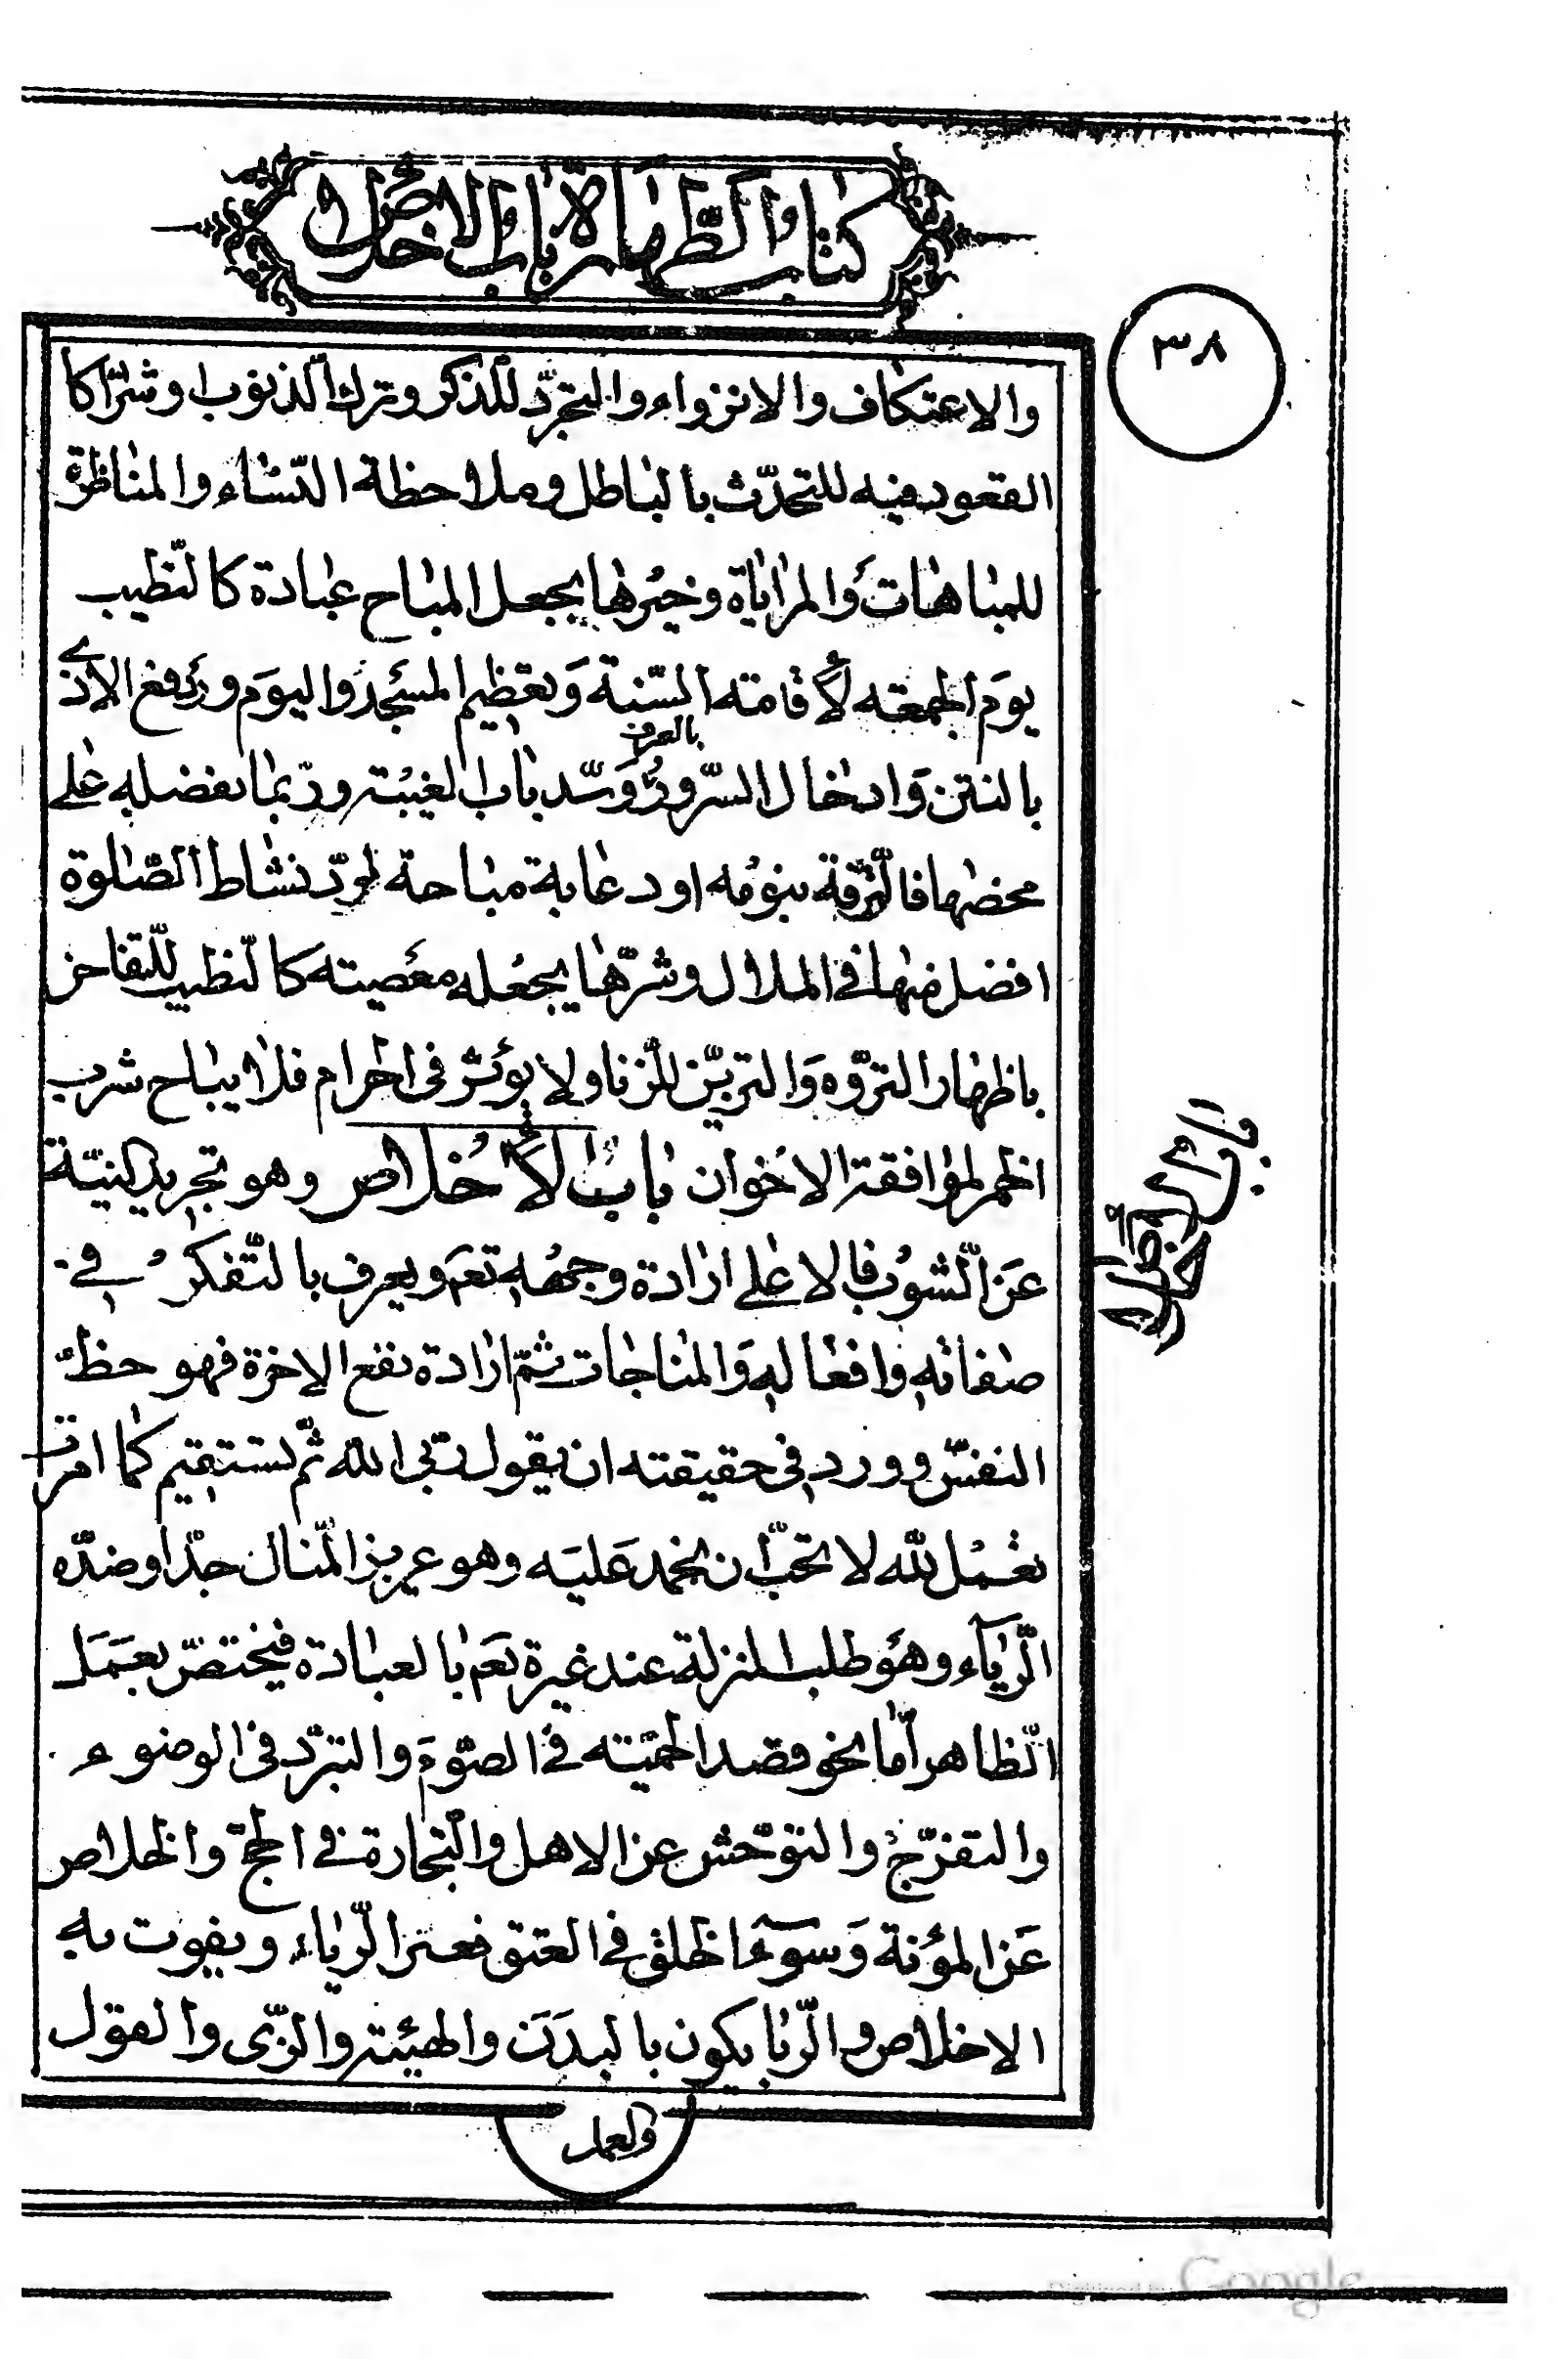 كتاب الطهارة باب الاخلاص
٣٨
والاعتكاف والانزواء والتجرّد للذكر وترك الذنوب وشرّا كا
القعود فيه للتحدّث بالباطل وملاحظة النّساء والمناظرة
للمباهات والمراياة وخيرها يجعل المباح عبادة كالتّطيب
يوم الجمعة لاقامته السّنة وتعظيم المسجد واليوم ودفع الاذى
بالنتن وادخال السّرور وسدّ باب الغيبة وربّما تفضله على
بالعرف
محضها فالتّرقّه بنومه او دعابة مباحة لردّ نشاط الصّلوة
افضل منها في الملال وشرّها يجعله معصيته كالتّطيب للتّفاخر
باظهار التروّه والتزيّن للزّنا ولا يؤثّر في الحرام فلا يباح شرب
الخمر لموافقة الاخوان باب الاخلاص وهو تجريد النيّة
عن الشوب فالاعلى ارادة وجهه تعم ويعرف بالتّفكر في
صفاته وافعاله والمناجات ثمّ ارادة نفع الاخرة فهو حظّ
النفس وورد في حقيقته ان يقول ربّي الله ثمّ تستقيم كما امرت
تعمل لله لا تحبّ ان يحمد عليه وهو عزيز المنال جدّا وضدّه
الرّياء وهو طلب المنزلة عند غيره تعم بالعبادة فيختصّ بعمل
الظاهر امّا نحو قصد الحمية في الصّوم والتبرّد في الوضوء
والتفرّج والتوحّش عن الاهل والتجارة في الحجّ والخلاص
عن المؤنة وسوء الخلق في العتق فعير الرّياء ويفوت به
الاخلاص والرّيا يكون بالبدن والهيئة والزّى والقول
والعمل
باب الاخلاص
Digitized by Google